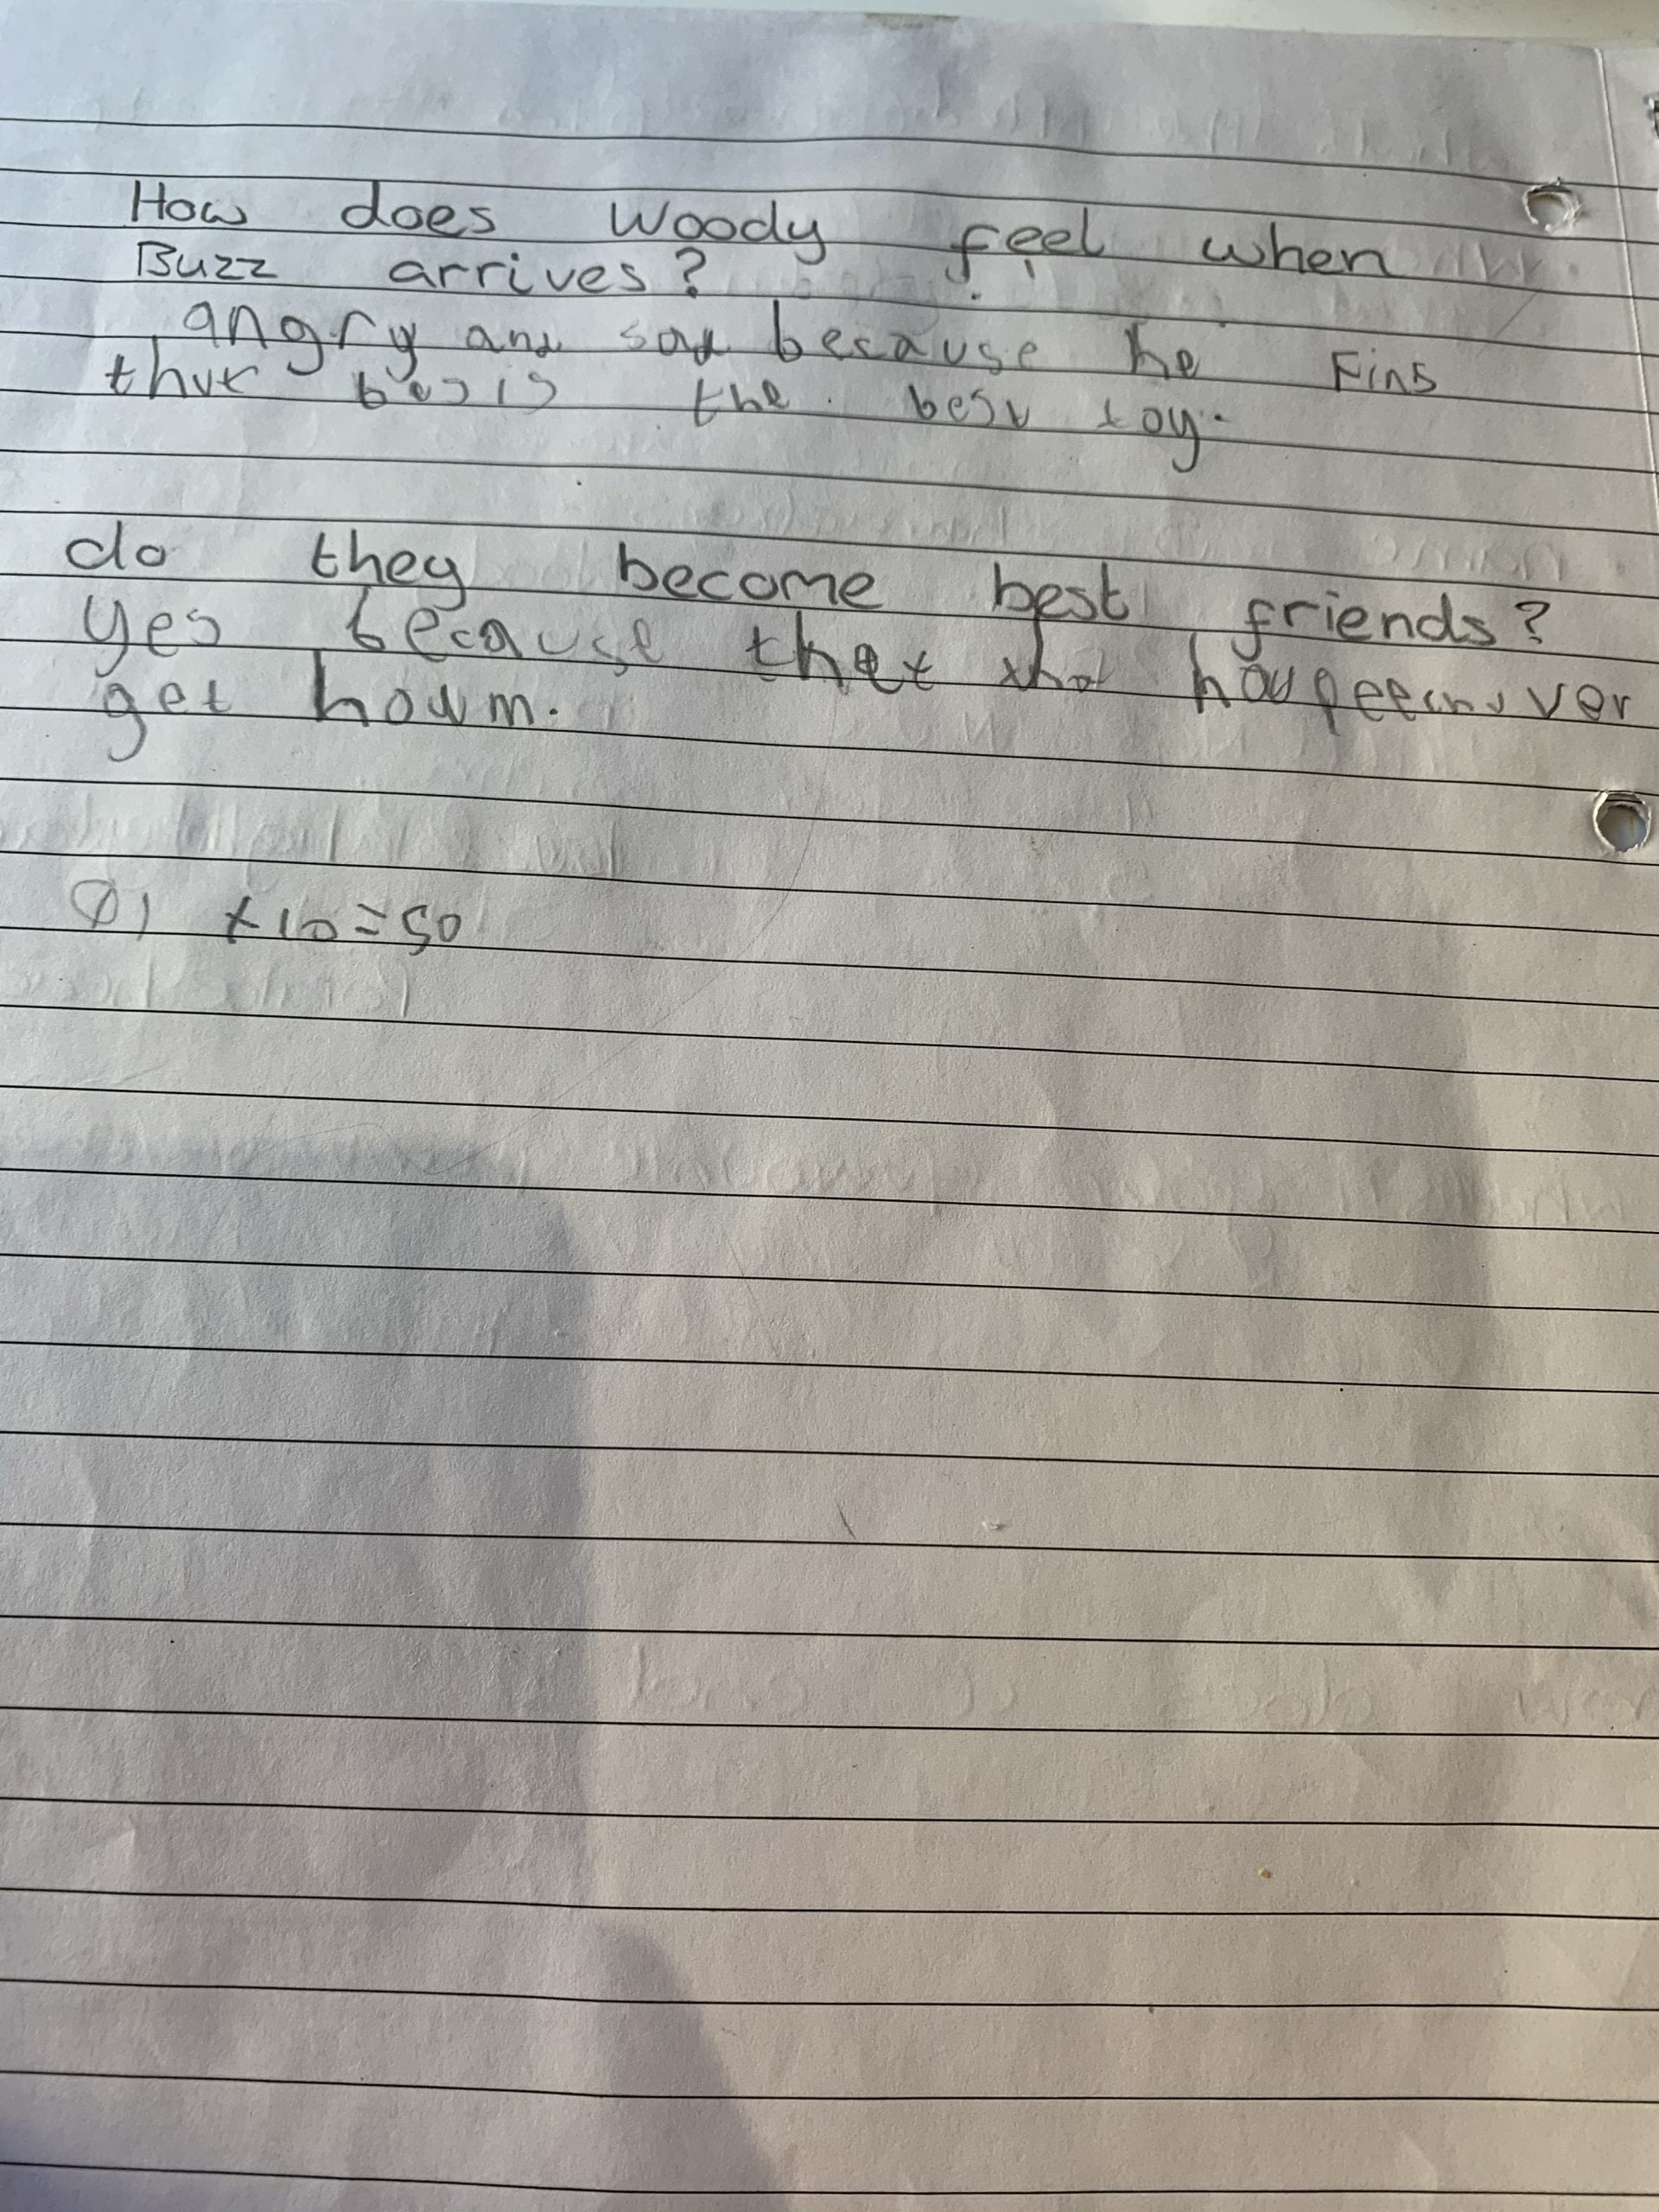 How does Woody feel when
Buzz arrives?
angry and sad because he Fins
the best toy.
do they become best friends?
yes because thet
get howm.
x10=50